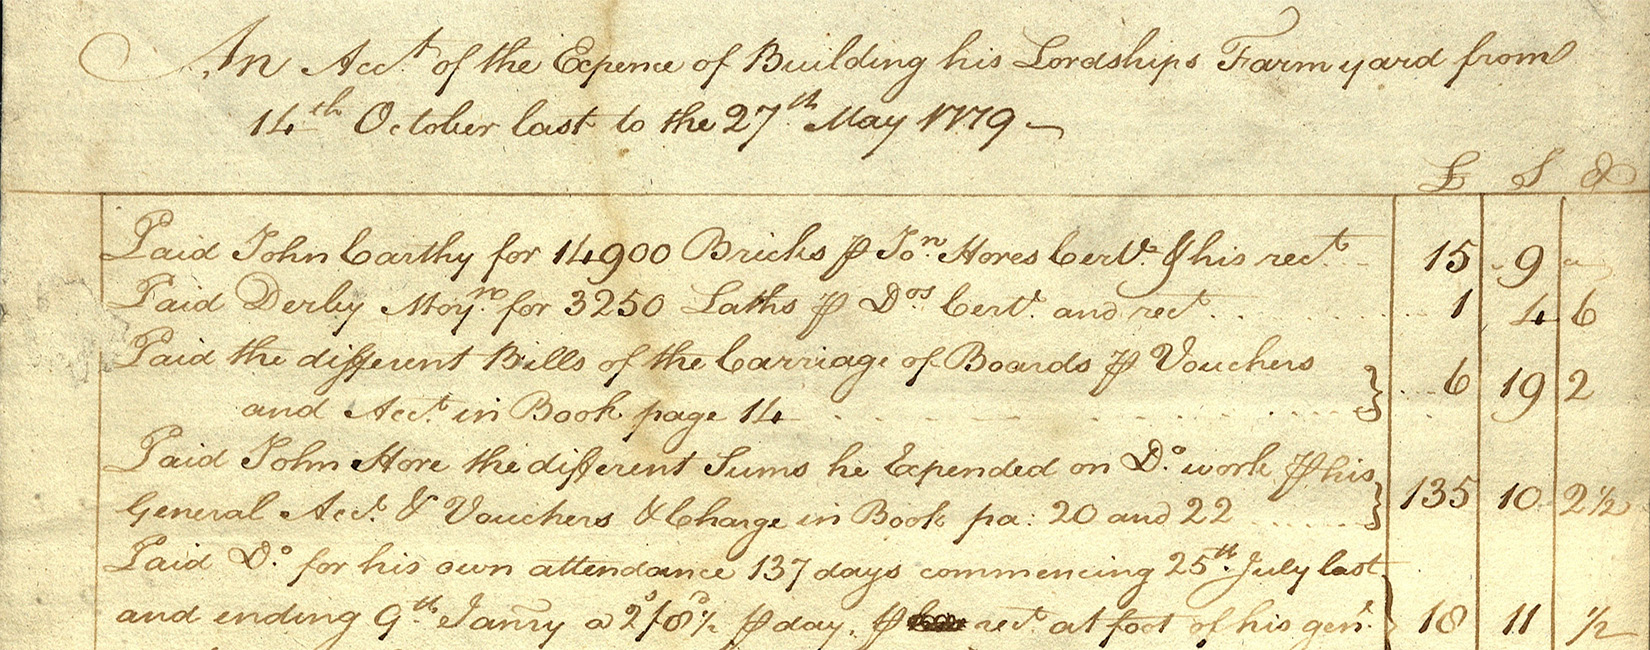 An Acct. of the Expence of Building his Lordships Farm yard from
14th October last to the 27th May 1779 –
£ S d
Paid John Carthy for 14900 Bricks ⅌ Jon. Hores Cert. & his rect. 15 9 "
Paid Derby Moyn. for 3250 Laths ⅌ Dos Cert. and rect. 1 4 6
Paid the different Bills of the Carriage of Boards ⅌ Vouchers
and Acct. in Book page 14 } 6 19 2
Paid John Hore the different Sums he Expended on Do. work ⅌ his
General Acct. & Vouchers & Charge in Book pa: 20 and 22 } 135 10 2½
Paid Do. for his own attendance 137 days commencing 25th. July last
and ending 9th. Janry a 2s/8d½ ⅌ day, ⅌ rect. at foot of his genl. } 18 11 ½